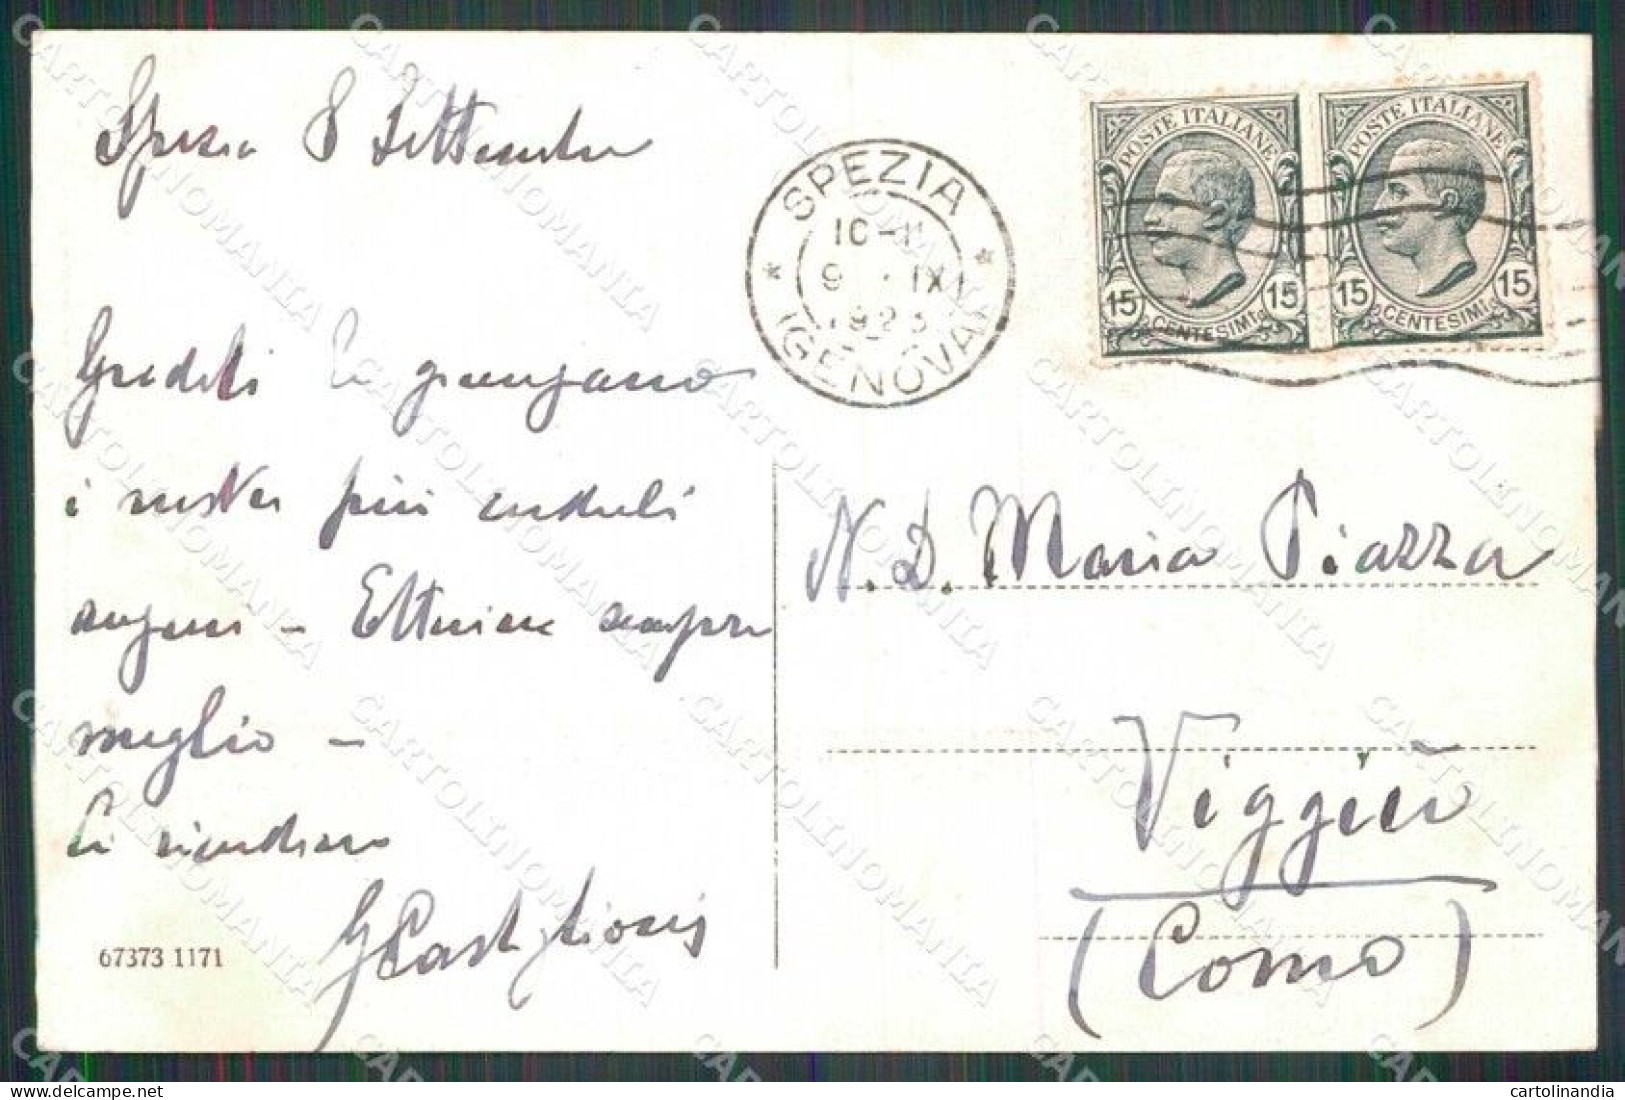 Spezia 8 Settembre
Graditi Le giungano
i nostri più cordiali
auguri - Ettorina sempre
meglio -
Ci ricordiamo
G Castiglioni
67373 1171
SPEZIA
10-11
9 · IX
1923
(GENOVA)
POSTE ITALIANE
15 CENTESIMI 15
POSTE ITALIANE
15 CENTESIMI 15
N. D. Maria Piazza
Viggiù
(Como)
CARTOLINOMANIA
cartolinandia